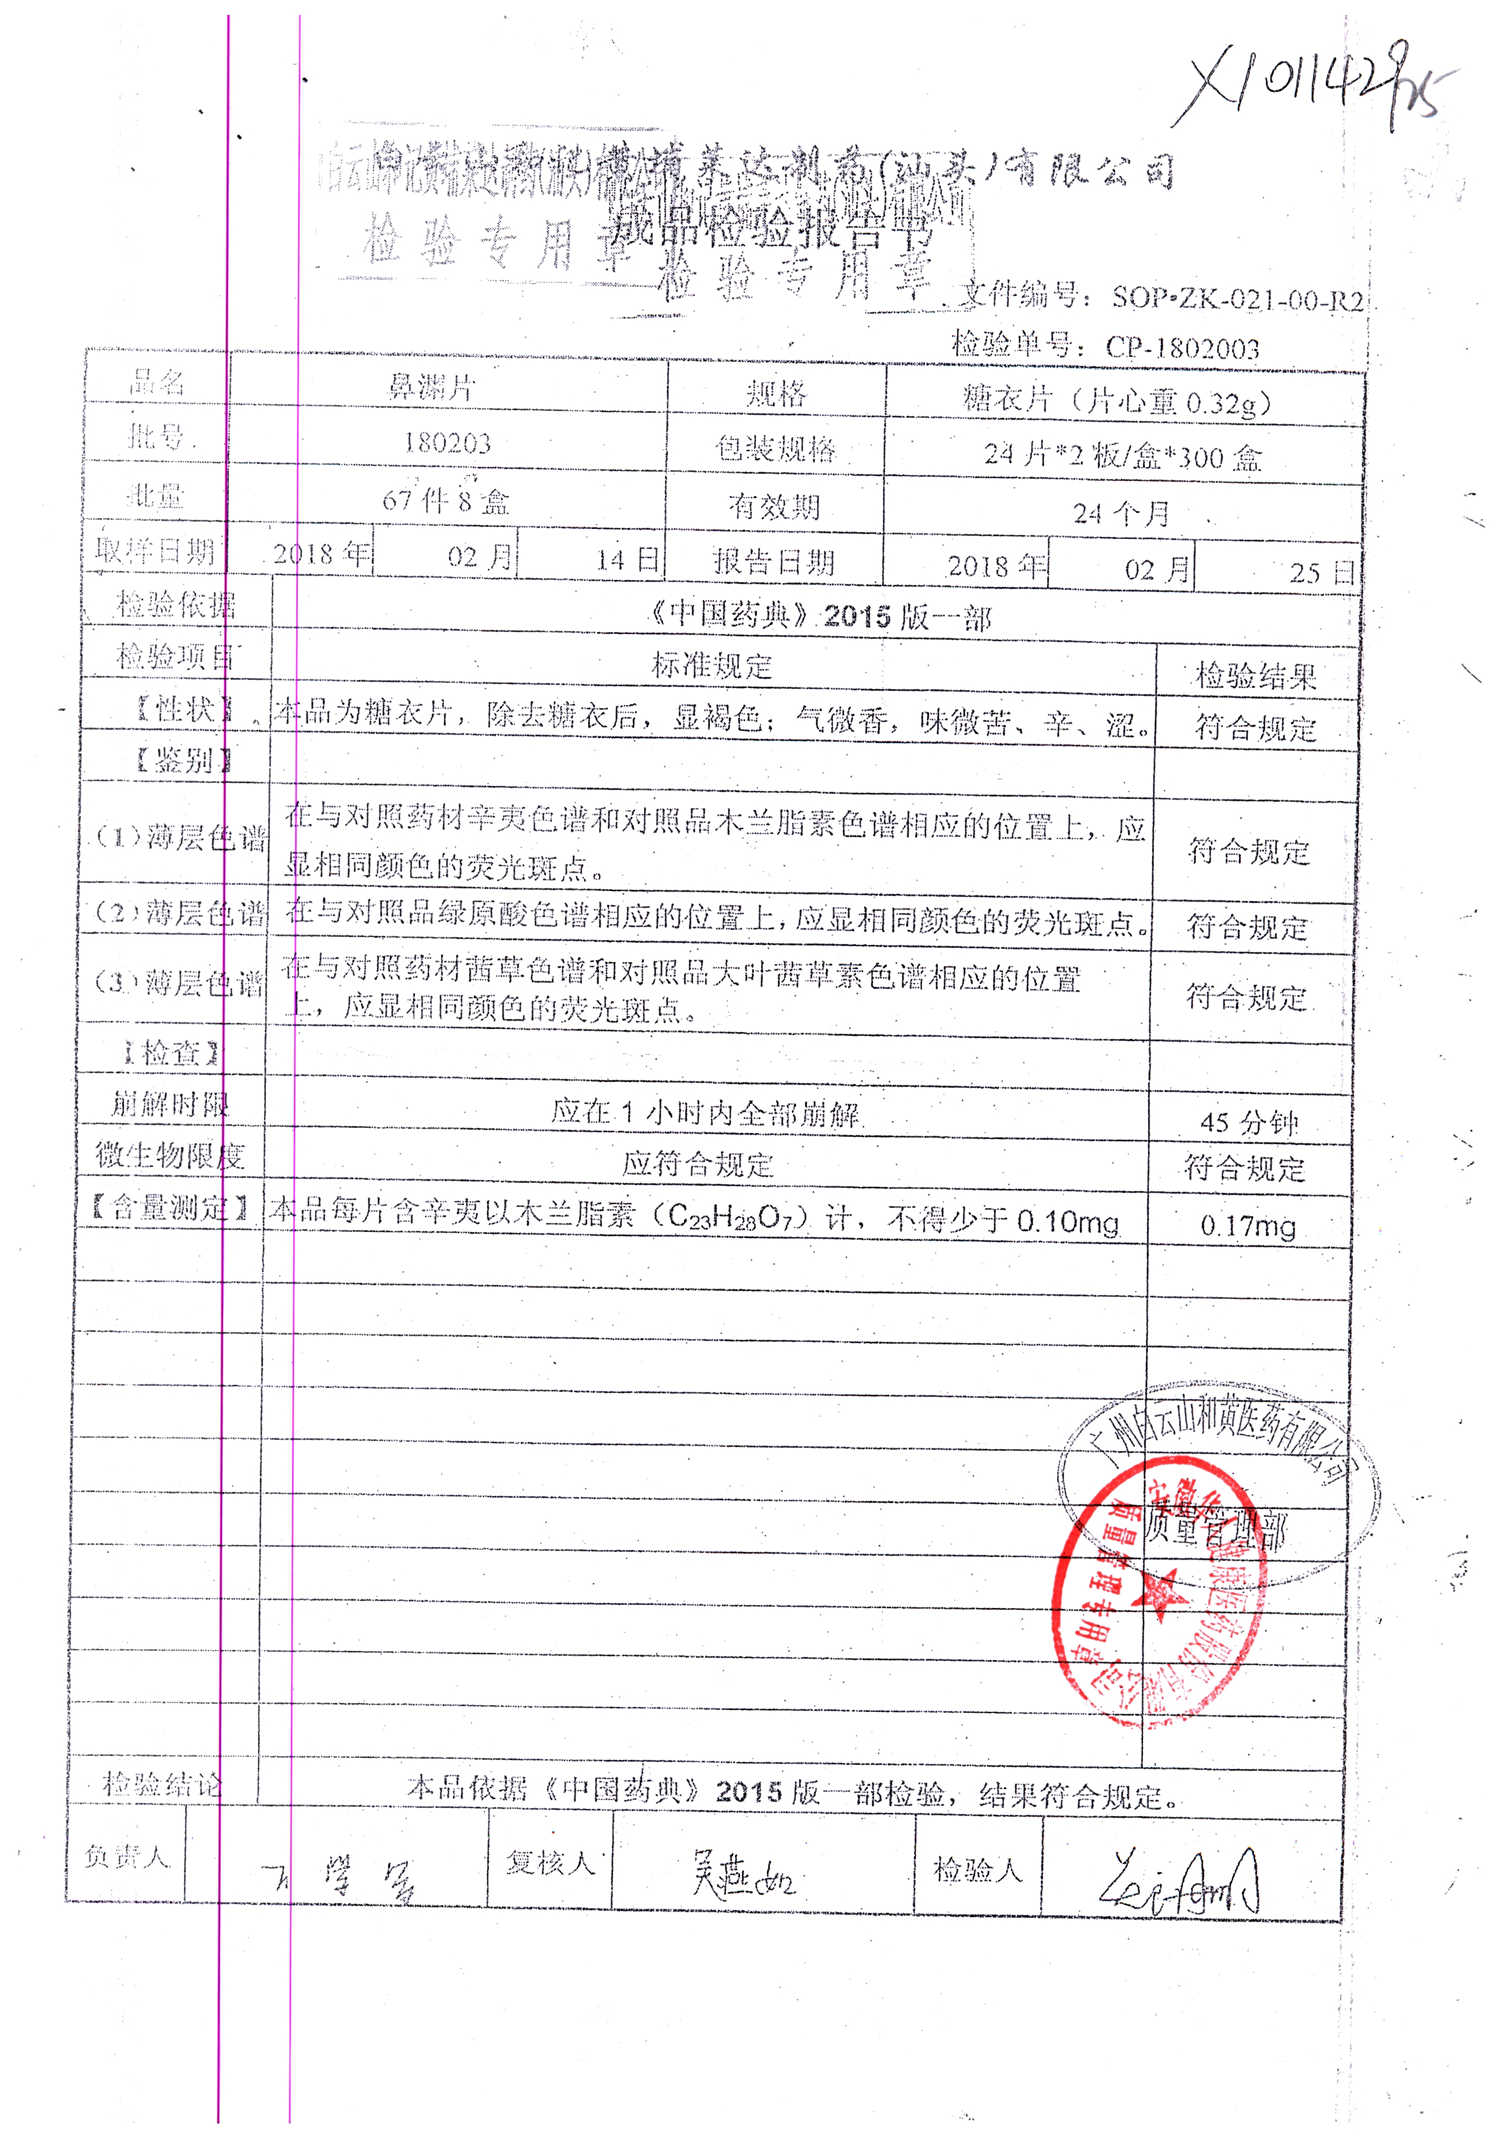 X1011429
莱达制药(汕头)有限公司
检验专用章
成品检验报告书
检验专用章
文件编号：SOP·ZK-021-00-R2
检验单号：CP-1802003
品名 鼻渊片 规格 糖衣片（片心重 0.32g）
批号 180203 包装规格 24 片*2 板/盒*300 盒
批量 67 件 8 盒 有效期 24 个月
取样日期 2018 年 02 月 14 日 报告日期 2018 年 02 月 25 日
检验依据 《中国药典》2015 版一部
检验项目 标准规定 检验结果
【性状】 本品为糖衣片，除去糖衣后，显褐色；气微香，味微苦、辛、涩。 符合规定
【鉴别】
（1）薄层色谱 在与对照药材辛夷色谱和对照品木兰脂素色谱相应的位置上，应
显相同颜色的荧光斑点。 符合规定
（2）薄层色谱 在与对照品绿原酸色谱相应的位置上，应显相同颜色的荧光斑点。 符合规定
（3）薄层色谱 在与对照药材茜草色谱和对照品大叶茜草素色谱相应的位置
上，应显相同颜色的荧光斑点。 符合规定
【检查】
崩解时限 应在 1 小时内全部崩解 45 分钟
微生物限度 应符合规定 符合规定
【含量测定】 本品每片含辛夷以木兰脂素（C23H28O7）计，不得少于 0.10mg 0.17mg
广州白云山和黄医药有限公司
质量管理部
安徽华人健康医药股份有限公司
质量管理专用章
检验结论 本品依据《中国药典》2015 版一部检验，结果符合规定。
负责人 复核人 吴燕如 检验人